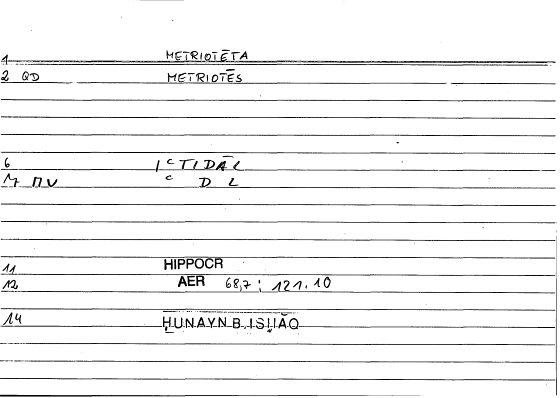 1 METRIOTĒTA
2 QD METRIOTĒS
6 IᶜTIDĀL
ᶜ D L
11 HIPPOCR
12 AER 68,7 : 121.10
14 ḤUNAYN B. ISḤĀQ